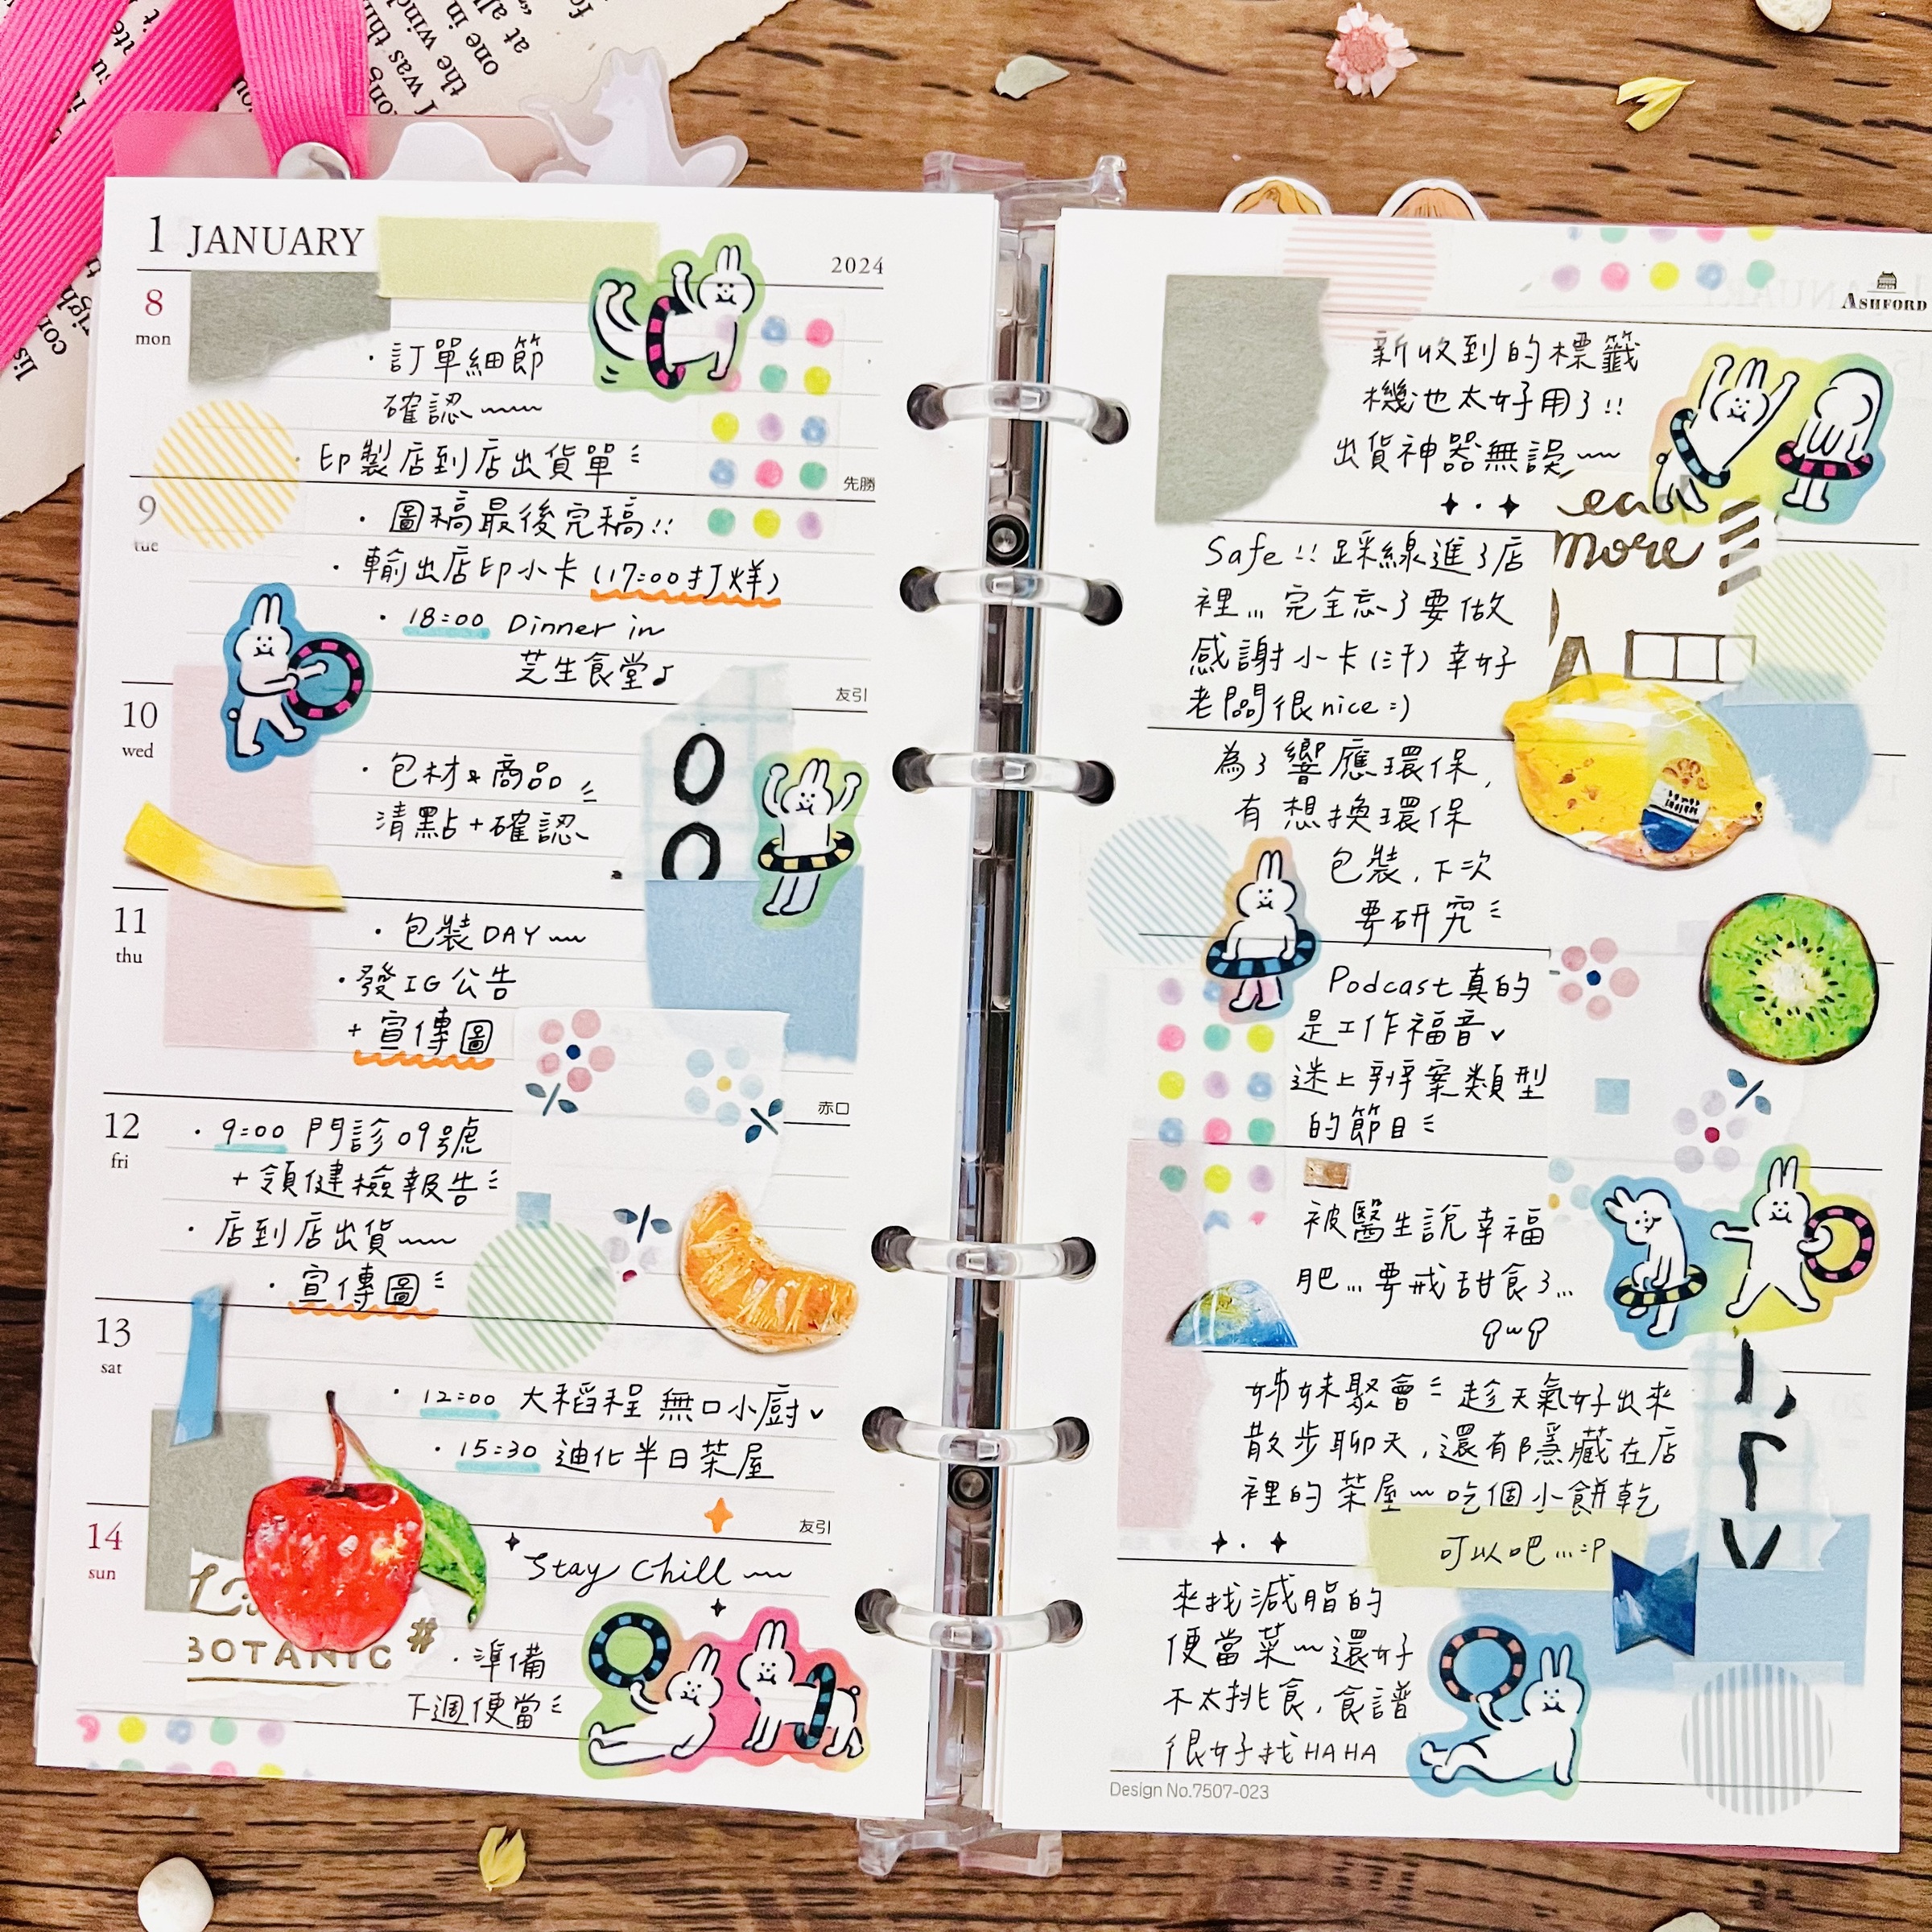 1 JANUARY
2024
8
mon
・訂單細節
確認~~
・印製店到店出貨單
先勝
9
tue
・圖稿最後完稿!!
・輸出店印小卡(17:00打烊)
・18:00 Dinner in
芝生食堂♪
友引
10
wed
・包材&商品
清點+確認
11
thu
・包裝DAY~~
・發IG公告
+宣傳圖
12
fri
赤口
・9:00 門診09號
+領健檢報告
・店到店出貨~~
・宣傳圖
13
sat
・12:00 大稻埕 無口小廚✓
・15:30 迪化半日茶屋
友引
14
sun
Stay Chill~~
BOTANIC
#
・準備
下週便當
ASHFORD
新收到的標籤
機也太好用了!!
出貨神器無誤~~
more
Safe!! 踩線進了店
裡... 完全忘了要做
感謝小卡(汗) 幸好
老闆很nice :)
為了響應環保,
有想換環保
包裝,下次
要研究
Podcast真的
是工作福音✓
迷上辦案類型
的節目
被醫生說幸福
肥...要戒甜食了...
qwq
姊妹聚會 趁天氣好出來
散步聊天,還有隱藏在店
裡的茶屋~吃個小餅乾
可以吧...:P
來找減脂的
便當菜~還好
不太挑食,食譜
很好找HAHA
Design No.7507-023